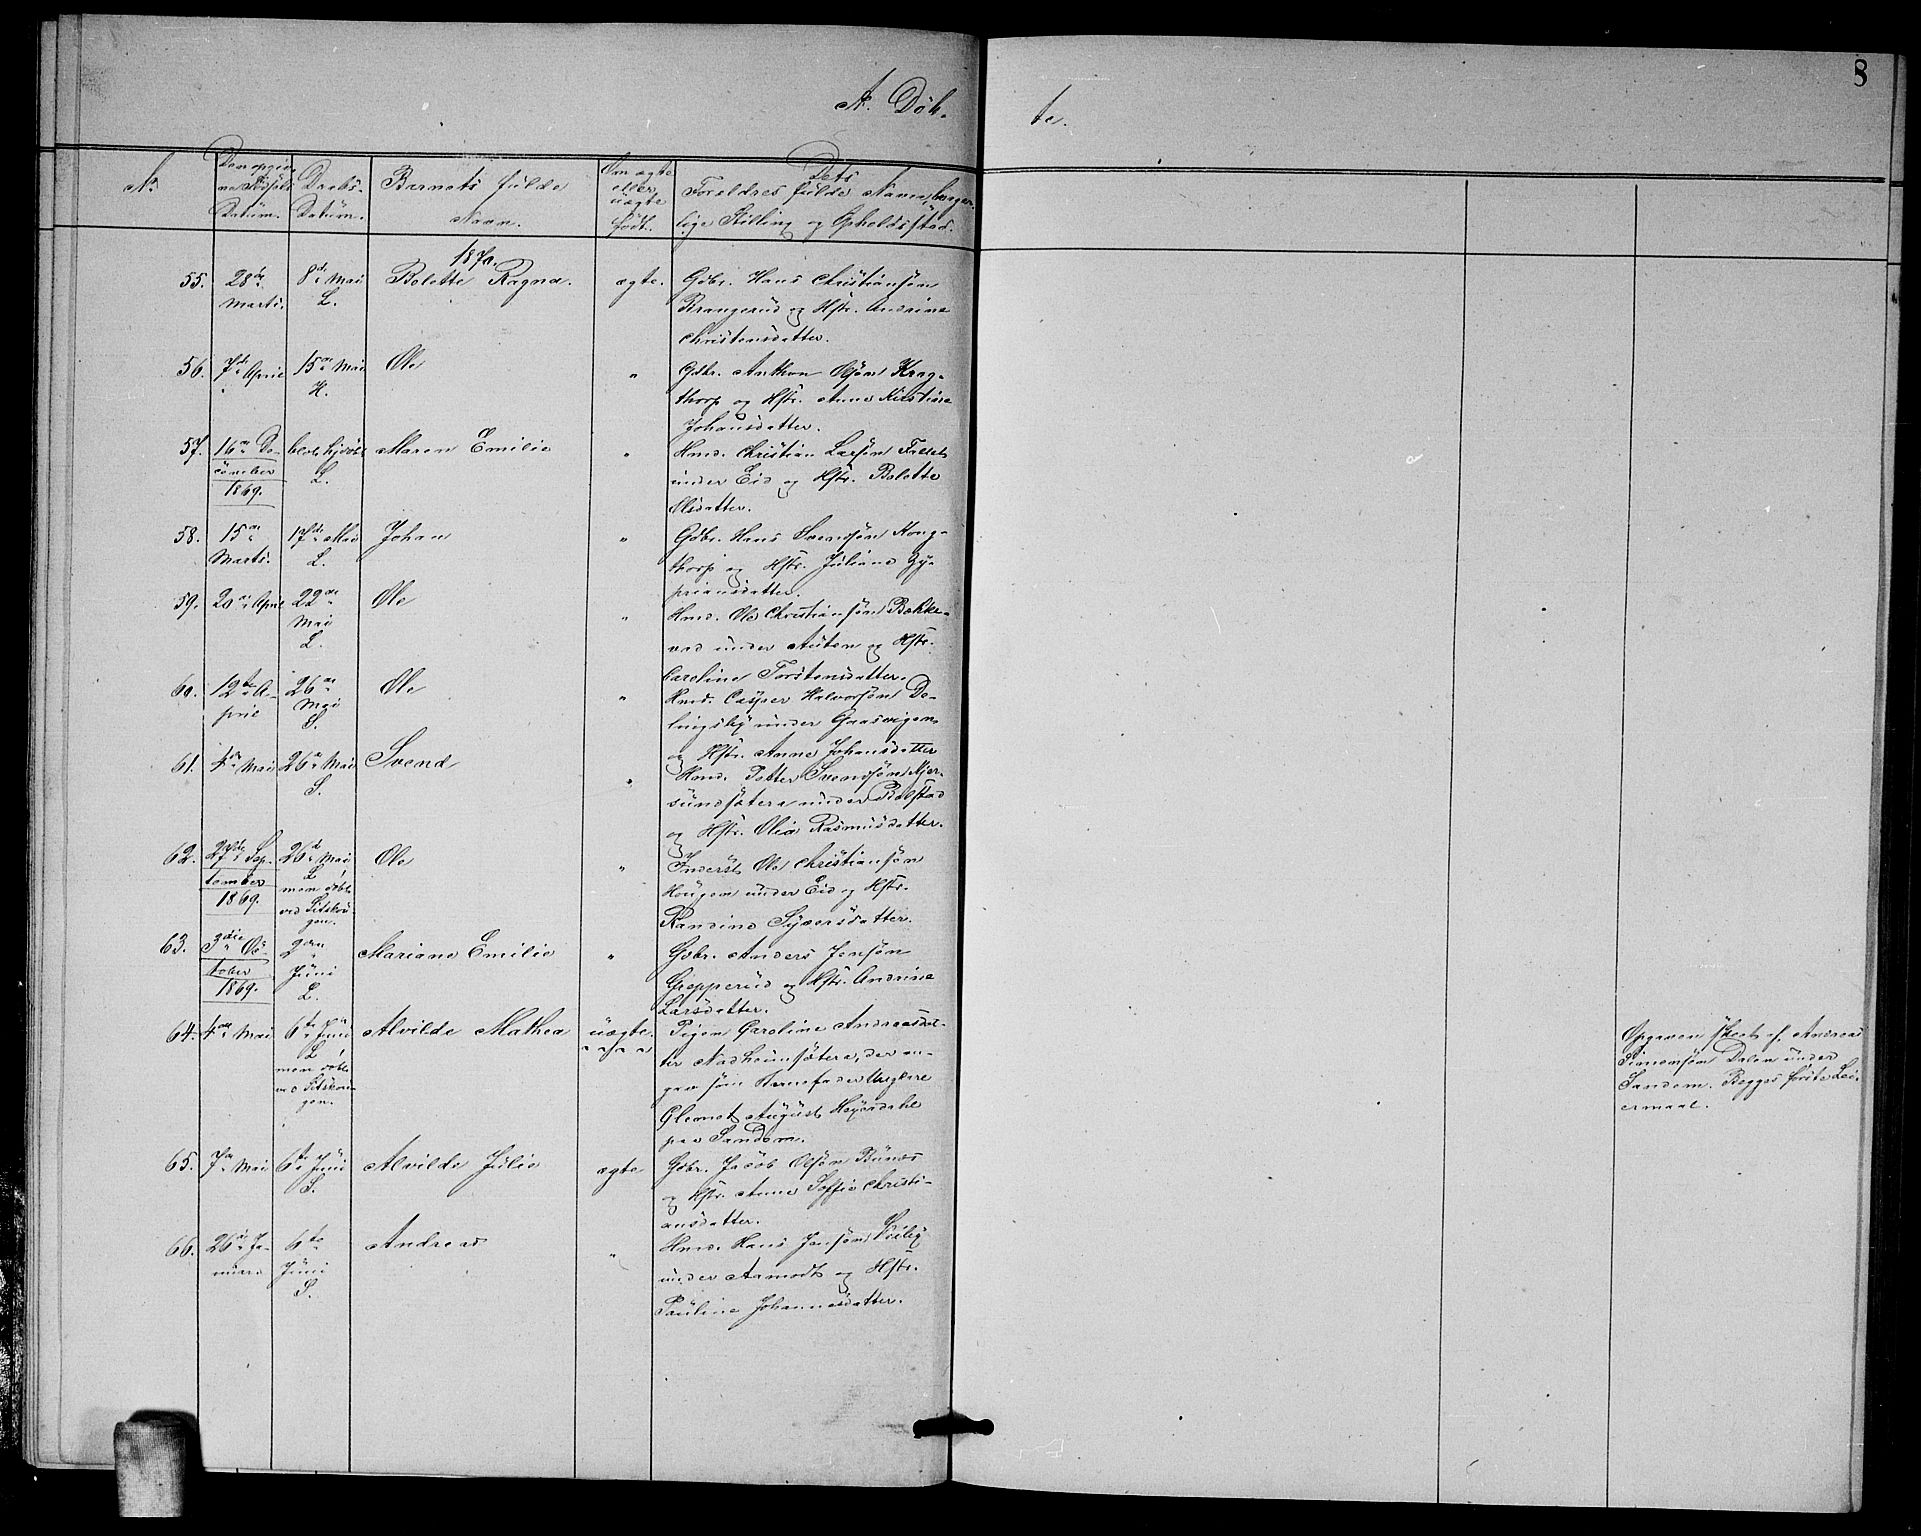 8
A. Døb-
te.
No
Den opgiv-
ne Fødsels
Datum.
Daabs-
Datum.
Barnets fulde
Navn.
Om ægte
eller
uægte
født.
Dets
Foreldres fulde Navne, borger-
lige Stilling og Opholdssted.
1870.
55. 28de Marts. 8de Mai L. Bolette Ragna. ægte. Gdbr. Hans Christiansøn
Brangerud og Hstr. Andrine
Christensdatter.
56. 7de April 15de Mai H. Ole " Gdbr. Anthon Olsøn Krag-
thorp og Hstr. Anne Kirstine
Johansdatter.
57. 16de De-
cember
1869. L. Maren Emilie " Hmd. Christian Larsøn
under Eid og Hstr. Bolette
Olsdatter.
58. 15de Marts. 17de Mai L. Johan " Gdbr. Hans Svendsøn Kong-
thorp og Hstr. Juliane Cy-
priansdatter.
59. 20de April 22de Mai L. Ole " Hmd. Ole Christiansøn Bække-
vad under Austen og Hstr.
Caroline Torstensdatter.
60. 12te A-
pril 26de Mai S. Ole " Hmd. Casper Halvorsøn De-
lingsby under Gaasvigen
og Hstr. Anne Johansdatter
61. 4de Mai 26de Mai S. Svend " Hmd. Petter Svendsøn Mjør-
sundsætera under Bølstad
og Hstr. Olia Rasmusdatter.
62. 27de Sep-
tember
1869. 26de Mai L,
men døbt
ved Sitskou-
gen. Ole " Inderst Ole Christiansøn
Hougen under Eid og Hstr.
Randine Syversdatter.
63. 3die Oc-
tober
1869. 2den Juni L. Mariane Emilie " Gdbr. Anders Jensøn
Grepperud og Hstr. Andrine
Larsdatter.
64. 4de Mai 6te Juni L,
men døbt
ved Sitskou-
gen. Alvilde Mathea uægte. Pigen Caroline Andreasdat-
ter Nadheimsætera, der an-
gav som Barnefader Ungkare
Clemet August Heyerdahl
paa Sandem.
Opgaven skeet af Andreas
Simensøn Dalen under
Sandem. Begges første Lei-
ermaal.
65. 7de Mai 6te Juni S. Alvilde Julie ægte Gdbr. Jacob Olsøn Bunæs
og Hstr. Anne Soffie Christi-
ansdatter.
66. 26de Ja-
nuar 6te Juni S. Andreas " Hmd. Hans Jensøn
under Aamodt og Hstr.
Pauline Johannesdatter.